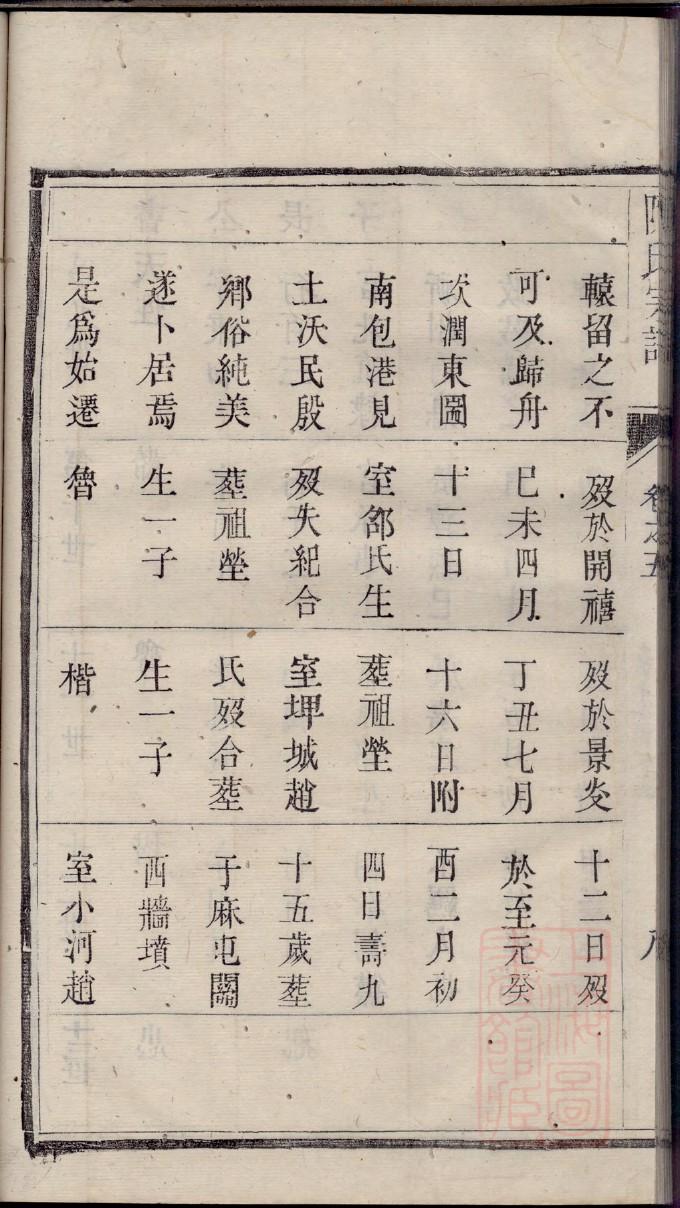 陳氏宗譜
卷之五
八
轅留之不
可及歸舟
次潤東圌
南包港見
土沃民殷
鄉俗純美
遂卜居焉
是爲始遷
歿於開禧
巳未四月
十三日
室郃氏生
歿失紀合
塟祖塋
生一子
魯
歿於景炎
丁丑七月
十六日附
塟祖塋
室埤城趙
氏歿合塟
生一子
楷
十二日歿
於至元癸
酉二月初
四日壽九
十五歲塟
于麻屯關
西牆墳
室小河趙